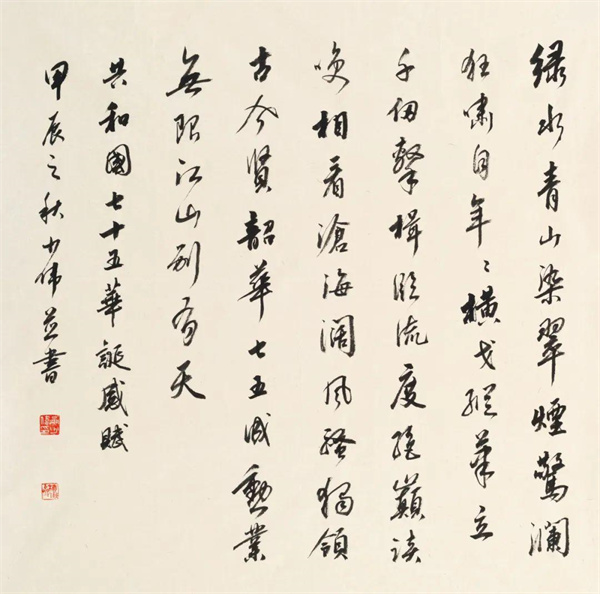 绿水青山染翠煙驚瀾
狂嘯自年々橫戈縱筆立
千仞擊楫臨流度絕巔談
咲相看滄海闊風騷獨領
古今賢韶華七五成勳業
無限江山別有天
共和國七十五華誕感賦
甲辰之秋少偉並書